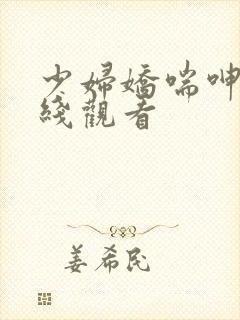 少婦嬌喘呻
綫觀看
姜希民